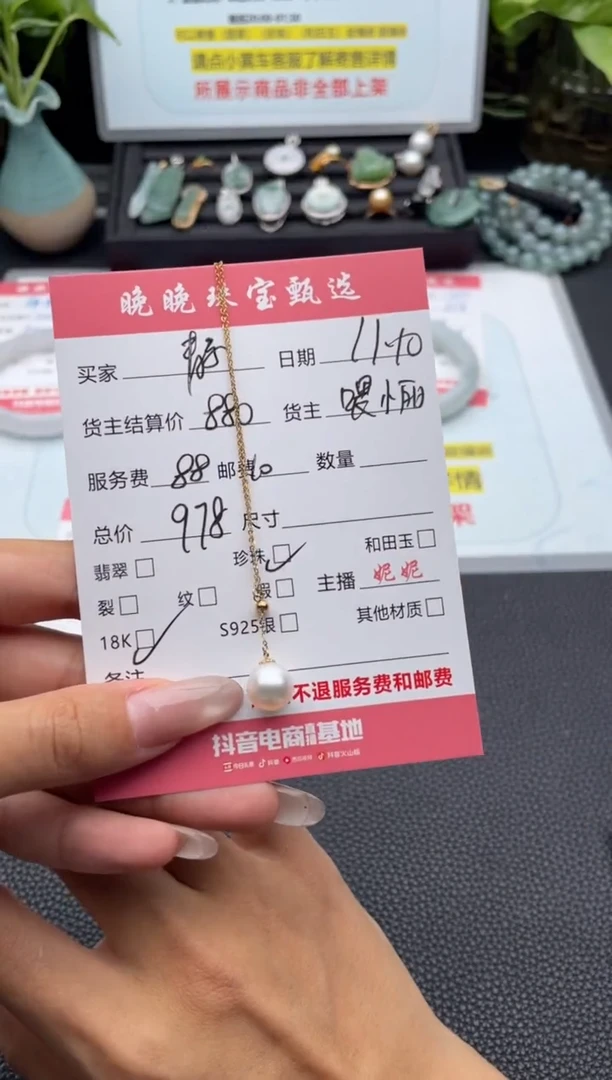 请点小黄车客服了解寄售详情
所展示商品非全部上架
晚晚珠宝甄选
买家 静 日期 11.40
货主结算价 880 货主
服务费 88 邮费10 数量
总价 978 尺寸
翡翠 珍珠 ✓ 和田玉
裂 纹 假 主播 妮妮
18K ✓ S925银 其他材质
备注
不退服务费和邮费
抖音电商直播基地
情
架